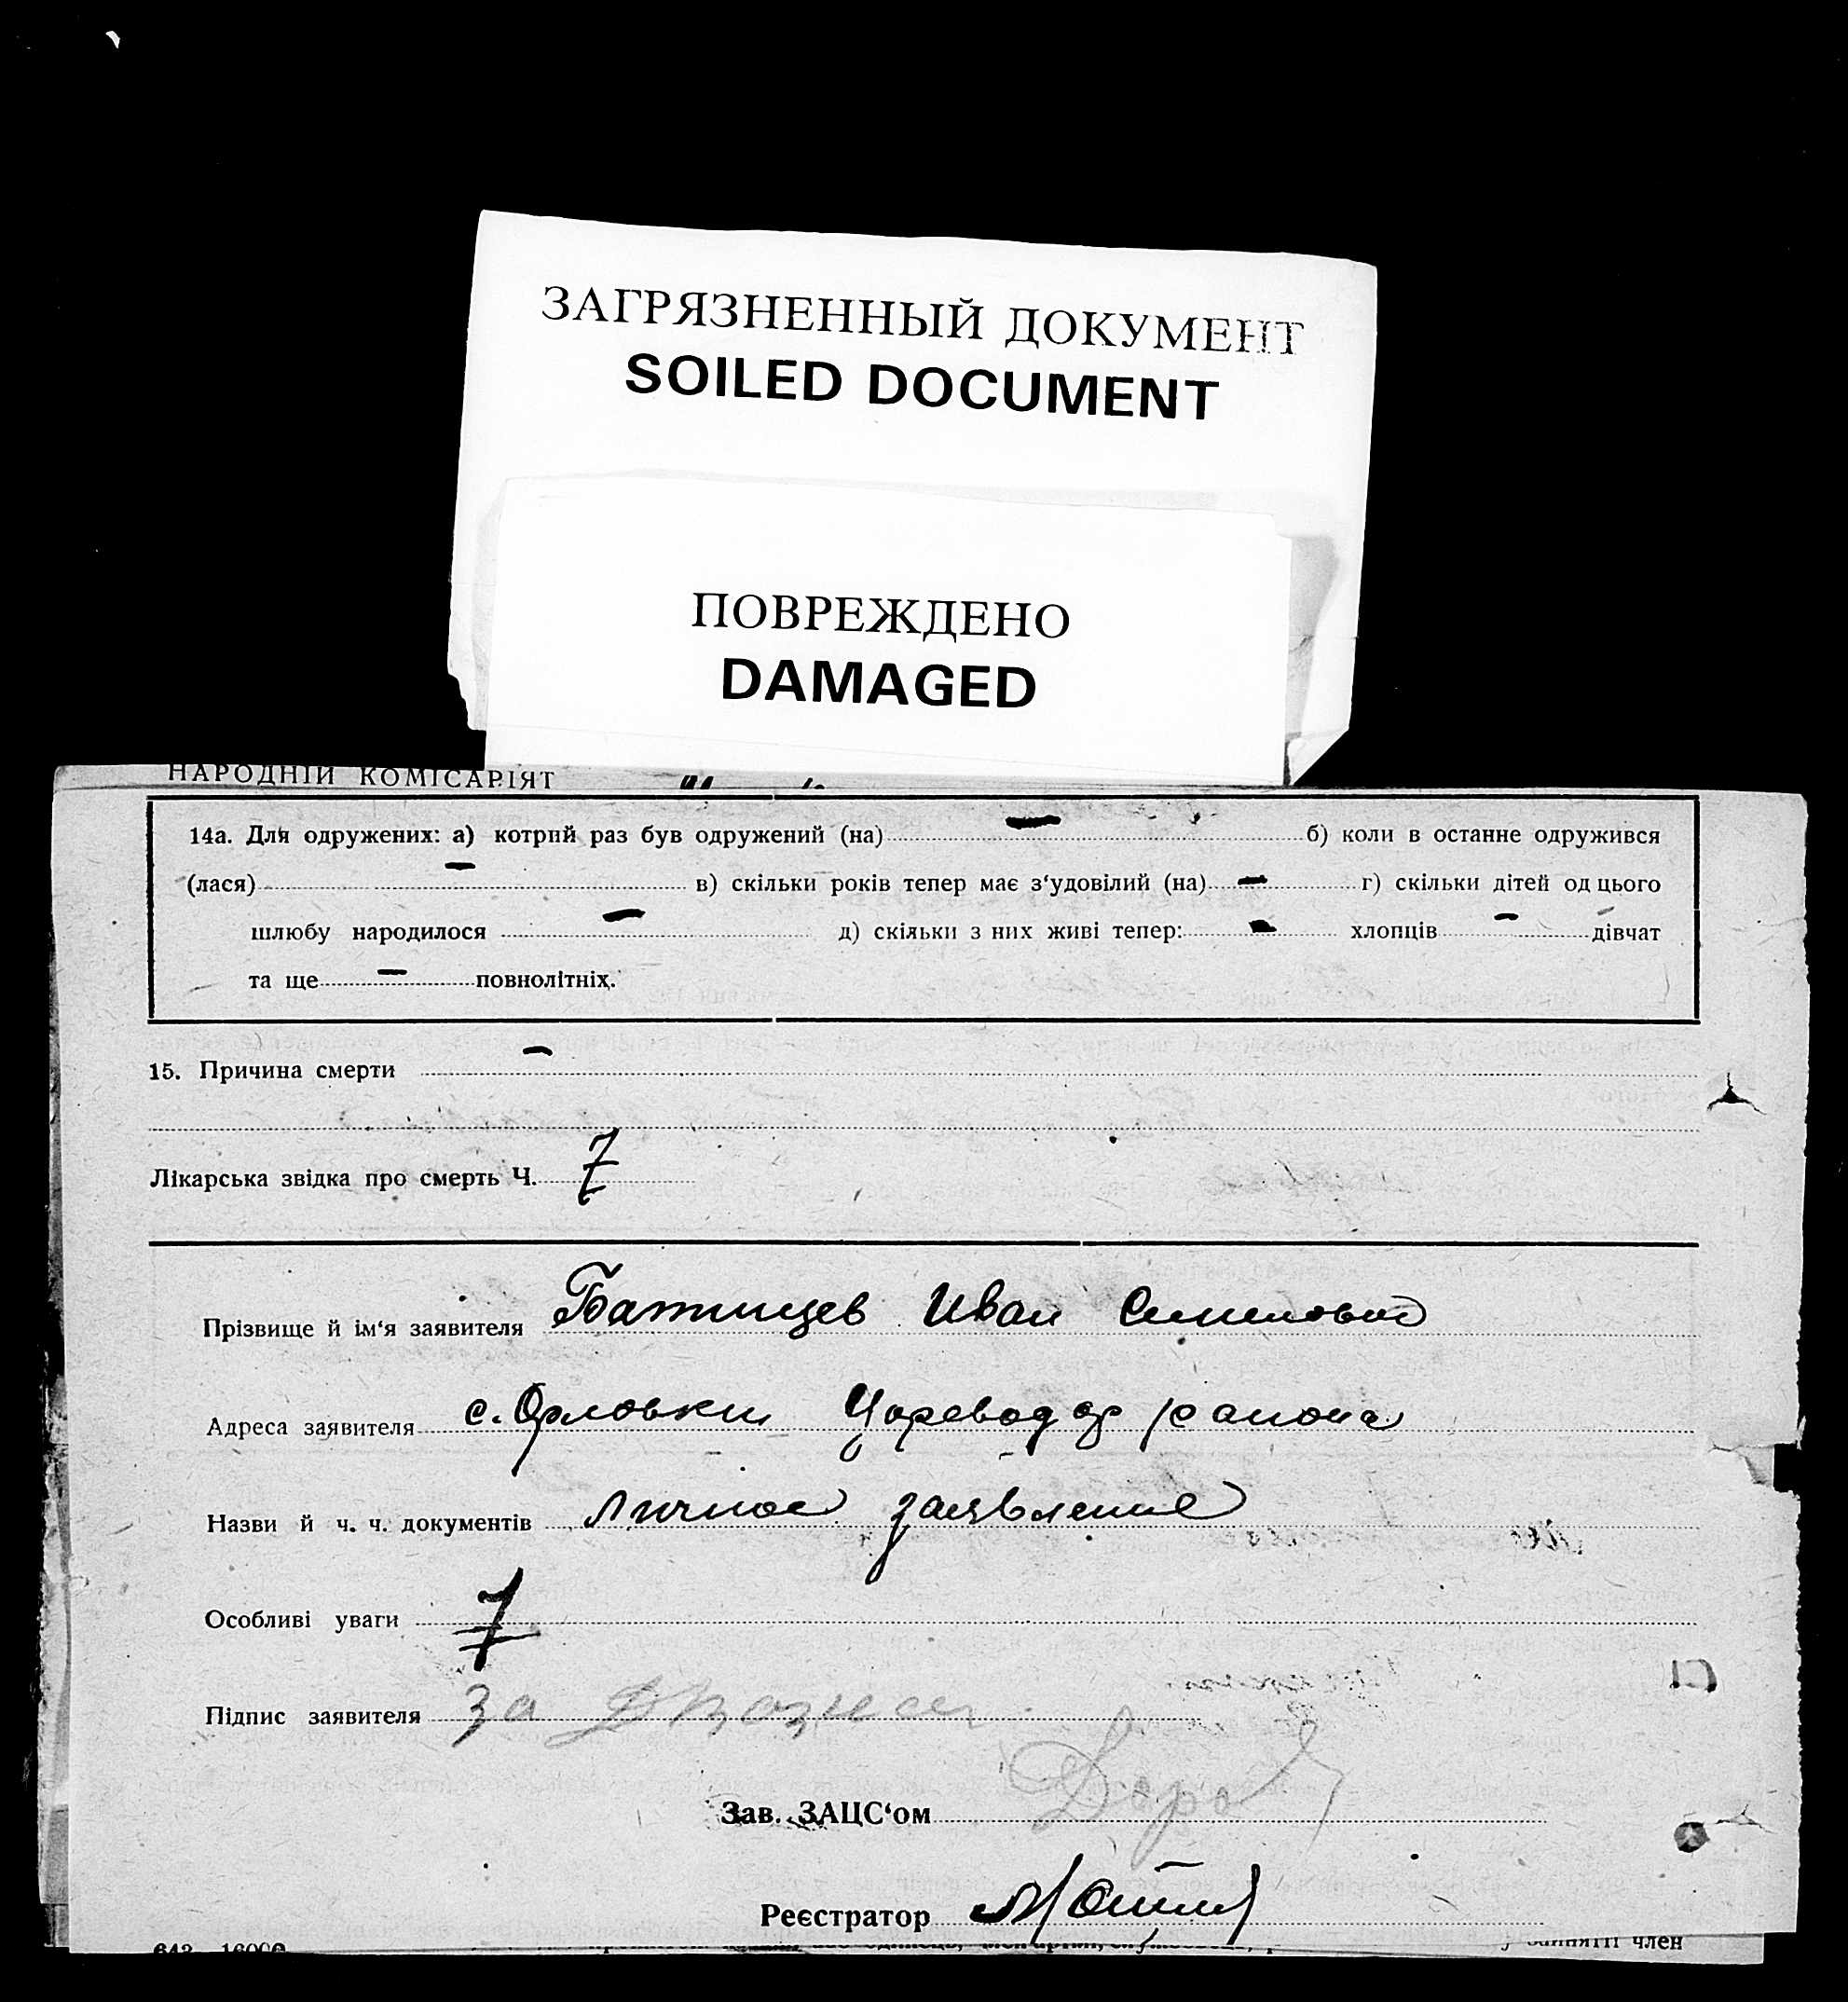 ЗАГРЯЗНЕННЫЙ ДОКУМЕНТ
SOILED DOCUMENT
ПОВРЕЖДЕНО
DAMAGED
НАРОДНІЙ КОМІСАРІЯТ
14а. Для одружених: а) котрий раз був одружений (на) — б) коли в останне одружився
(лася) — в) скільки років тепер має з‘удовілий (на) — г) скільки дітей од цього
шлюбу народилося — д) скільки з них живі тепер: — хлопців — дівчат
та ще — повнолітніх.
15. Причина смерти —
Лікарська звідка про смерть Ч. 7
Прізвище й ім‘я заявителя Батищев Иван Семенович
Адреса заявителя с. Орловки района
Назви й ч. ч. документів личное заявление
Особливі уваги 7
Підпис заявителя за
Зав. ЗАЦС‘ом
Реєстратор
член